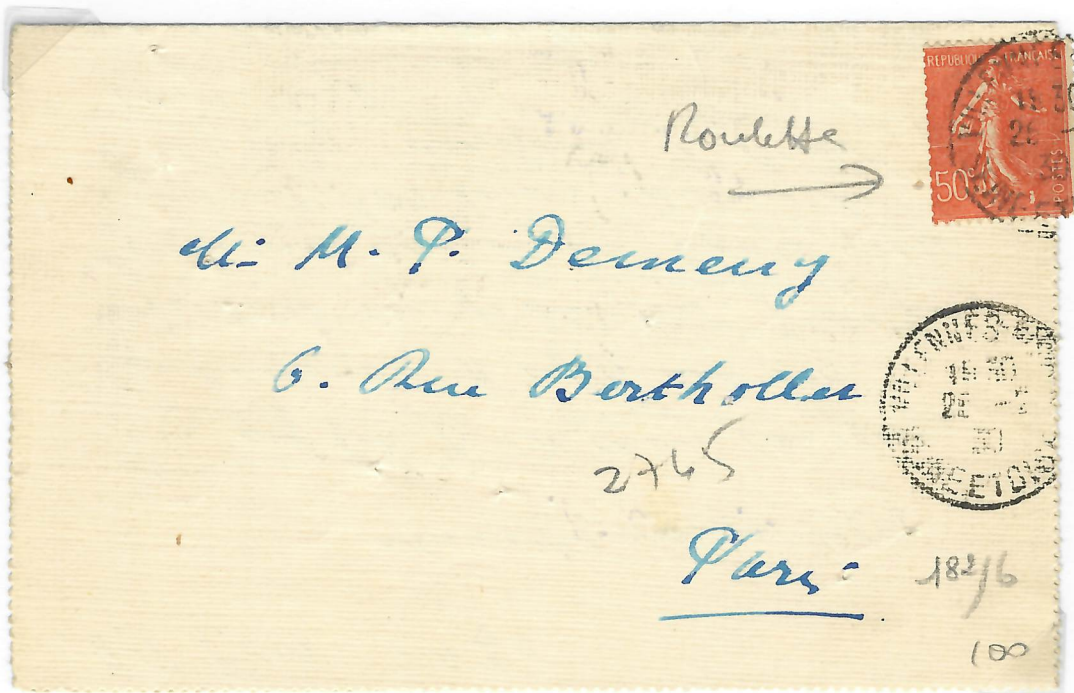 REPUBLIQUE FRANÇAISE
50c
POSTES
Roulette
Mr M. P. Demeny
6. Rue Berthollet
2745
Paris
182/6
100